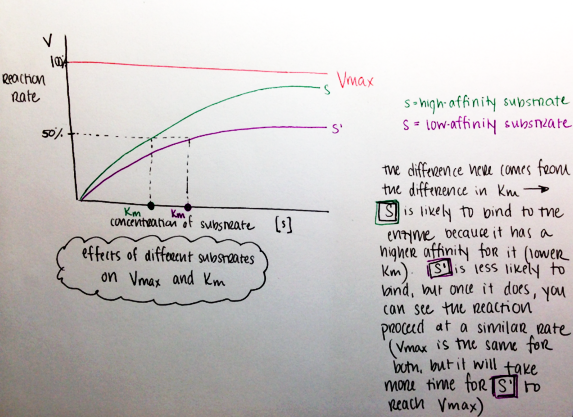 V
100%
Reaction
Rate
Vmax
S
S'
50%
Km
Km
concentration of substrate [s]
effects of different substrates
on Vmax and Km
S = high-affinity substrate
S = low-affinity substrate
the difference here comes from
the difference in Km →
S is likely to bind to the
enzyme because it has a
higher affinity for it (lower
Km). S' is less likely to
bind, but once it does, you
can see the reaction
proceed at a similar rate
(Vmax is the same for
both, but it will take
more time for S' to
reach Vmax)